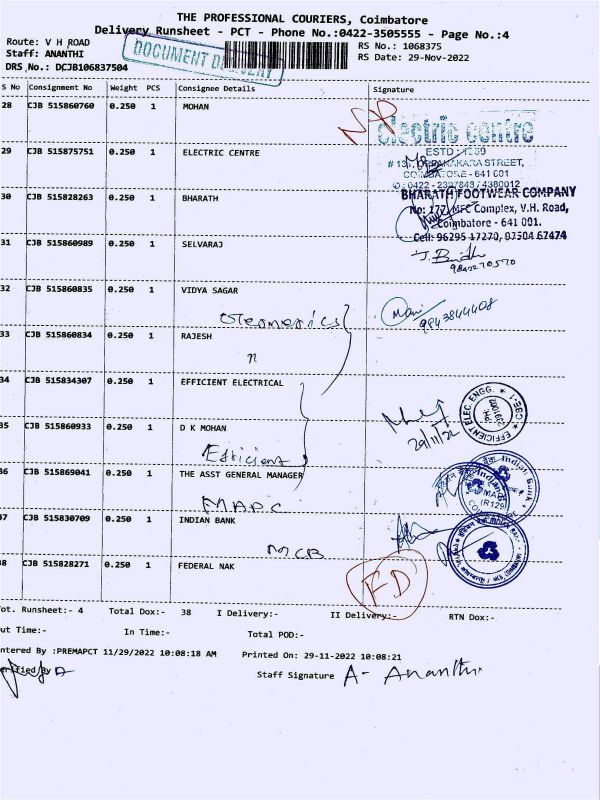 THE PROFESSIONAL COURIERS, Coimbatore
Delivery Runsheet - PCT - Phone No.:0422-3505555 - Page No.:4
Route: V H ROAD
Staff: ANANTHI
DRS No.: DCJB106837504
DOCUMENT DELIVERY
RS No.: 1068375
RS Date: 29-Nov-2022
S No Consignment No Weight PCS Consignee Details Signature
28 CJB 515860760 0.250 1 MOHAN
electric centre
ESTD
29 CJB 515875751 0.250 1 ELECTRIC CENTRE
STREET,
COIMBATORE - 641 001
30 CJB 515828263 0.250 1 BHARATH
BHARATH FOOTWEAR COMPANY
No: 177, MFC Complex, V.H. Road,
Coimbatore - 641 001.
Cell: 96295 17270, 97504 67474
31 CJB 515860989 0.250 1 SELVARAJ
9842270570
32 CJB 515860835 0.250 1 VIDYA SAGAR
Mani
9843844408
33 CJB 515860834 0.250 1 RAJESH
n
34 CJB 515834307 0.250 1 EFFICIENT ELECTRICAL
EFFICIENT ELEC. ENGG. * CBE-1 *
29/11/22
35 CJB 515860933 0.250 1 D K MOHAN
Efficient
36 CJB 515869041 0.250 1 THE ASST GENERAL MANAGER
Indian Bank
37 CJB 515830709 0.250 1 INDIAN BANK
MCB
38 CJB 515828271 0.250 1 FEDERAL NAK
FD
Tot. Runsheet:- 4 Total Dox:- 38 I Delivery:- II Delivery:- RTN Dox:-
Out Time:- In Time:- Total POD:-
Entered By :PREMAPCT 11/29/2022 10:08:18 AM Printed On: 29-11-2022 10:08:21
Verified By
Staff Signature A- Ananthi